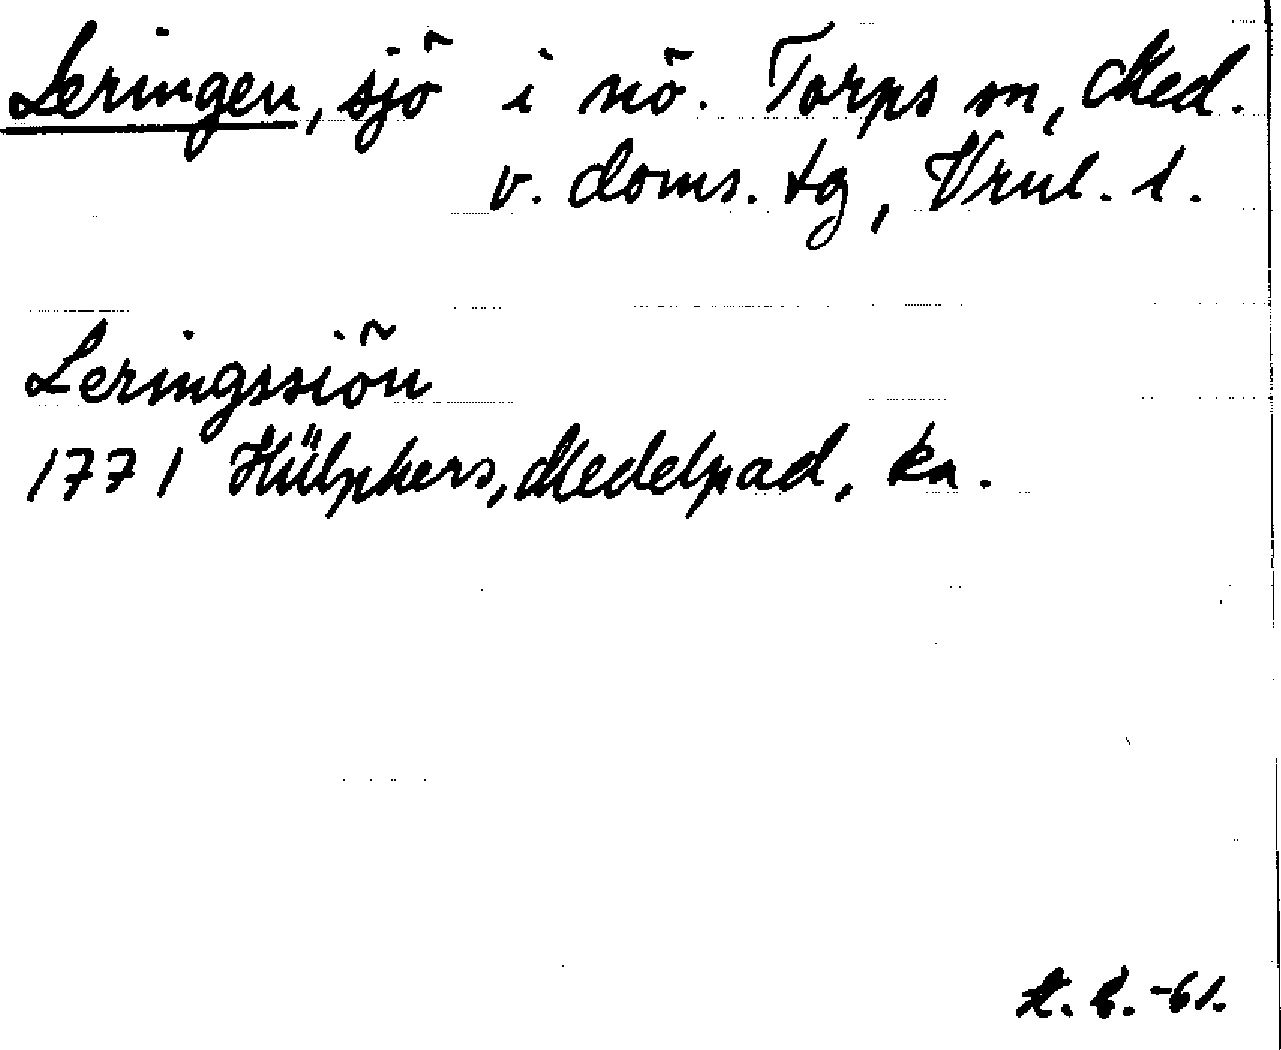 Leringen, sjö i nö. Torps sn, Med.
v. doms. tg, Vrnl. l.
Leringssiön
1771 Hülphers, Medelpad, ka.
-61.